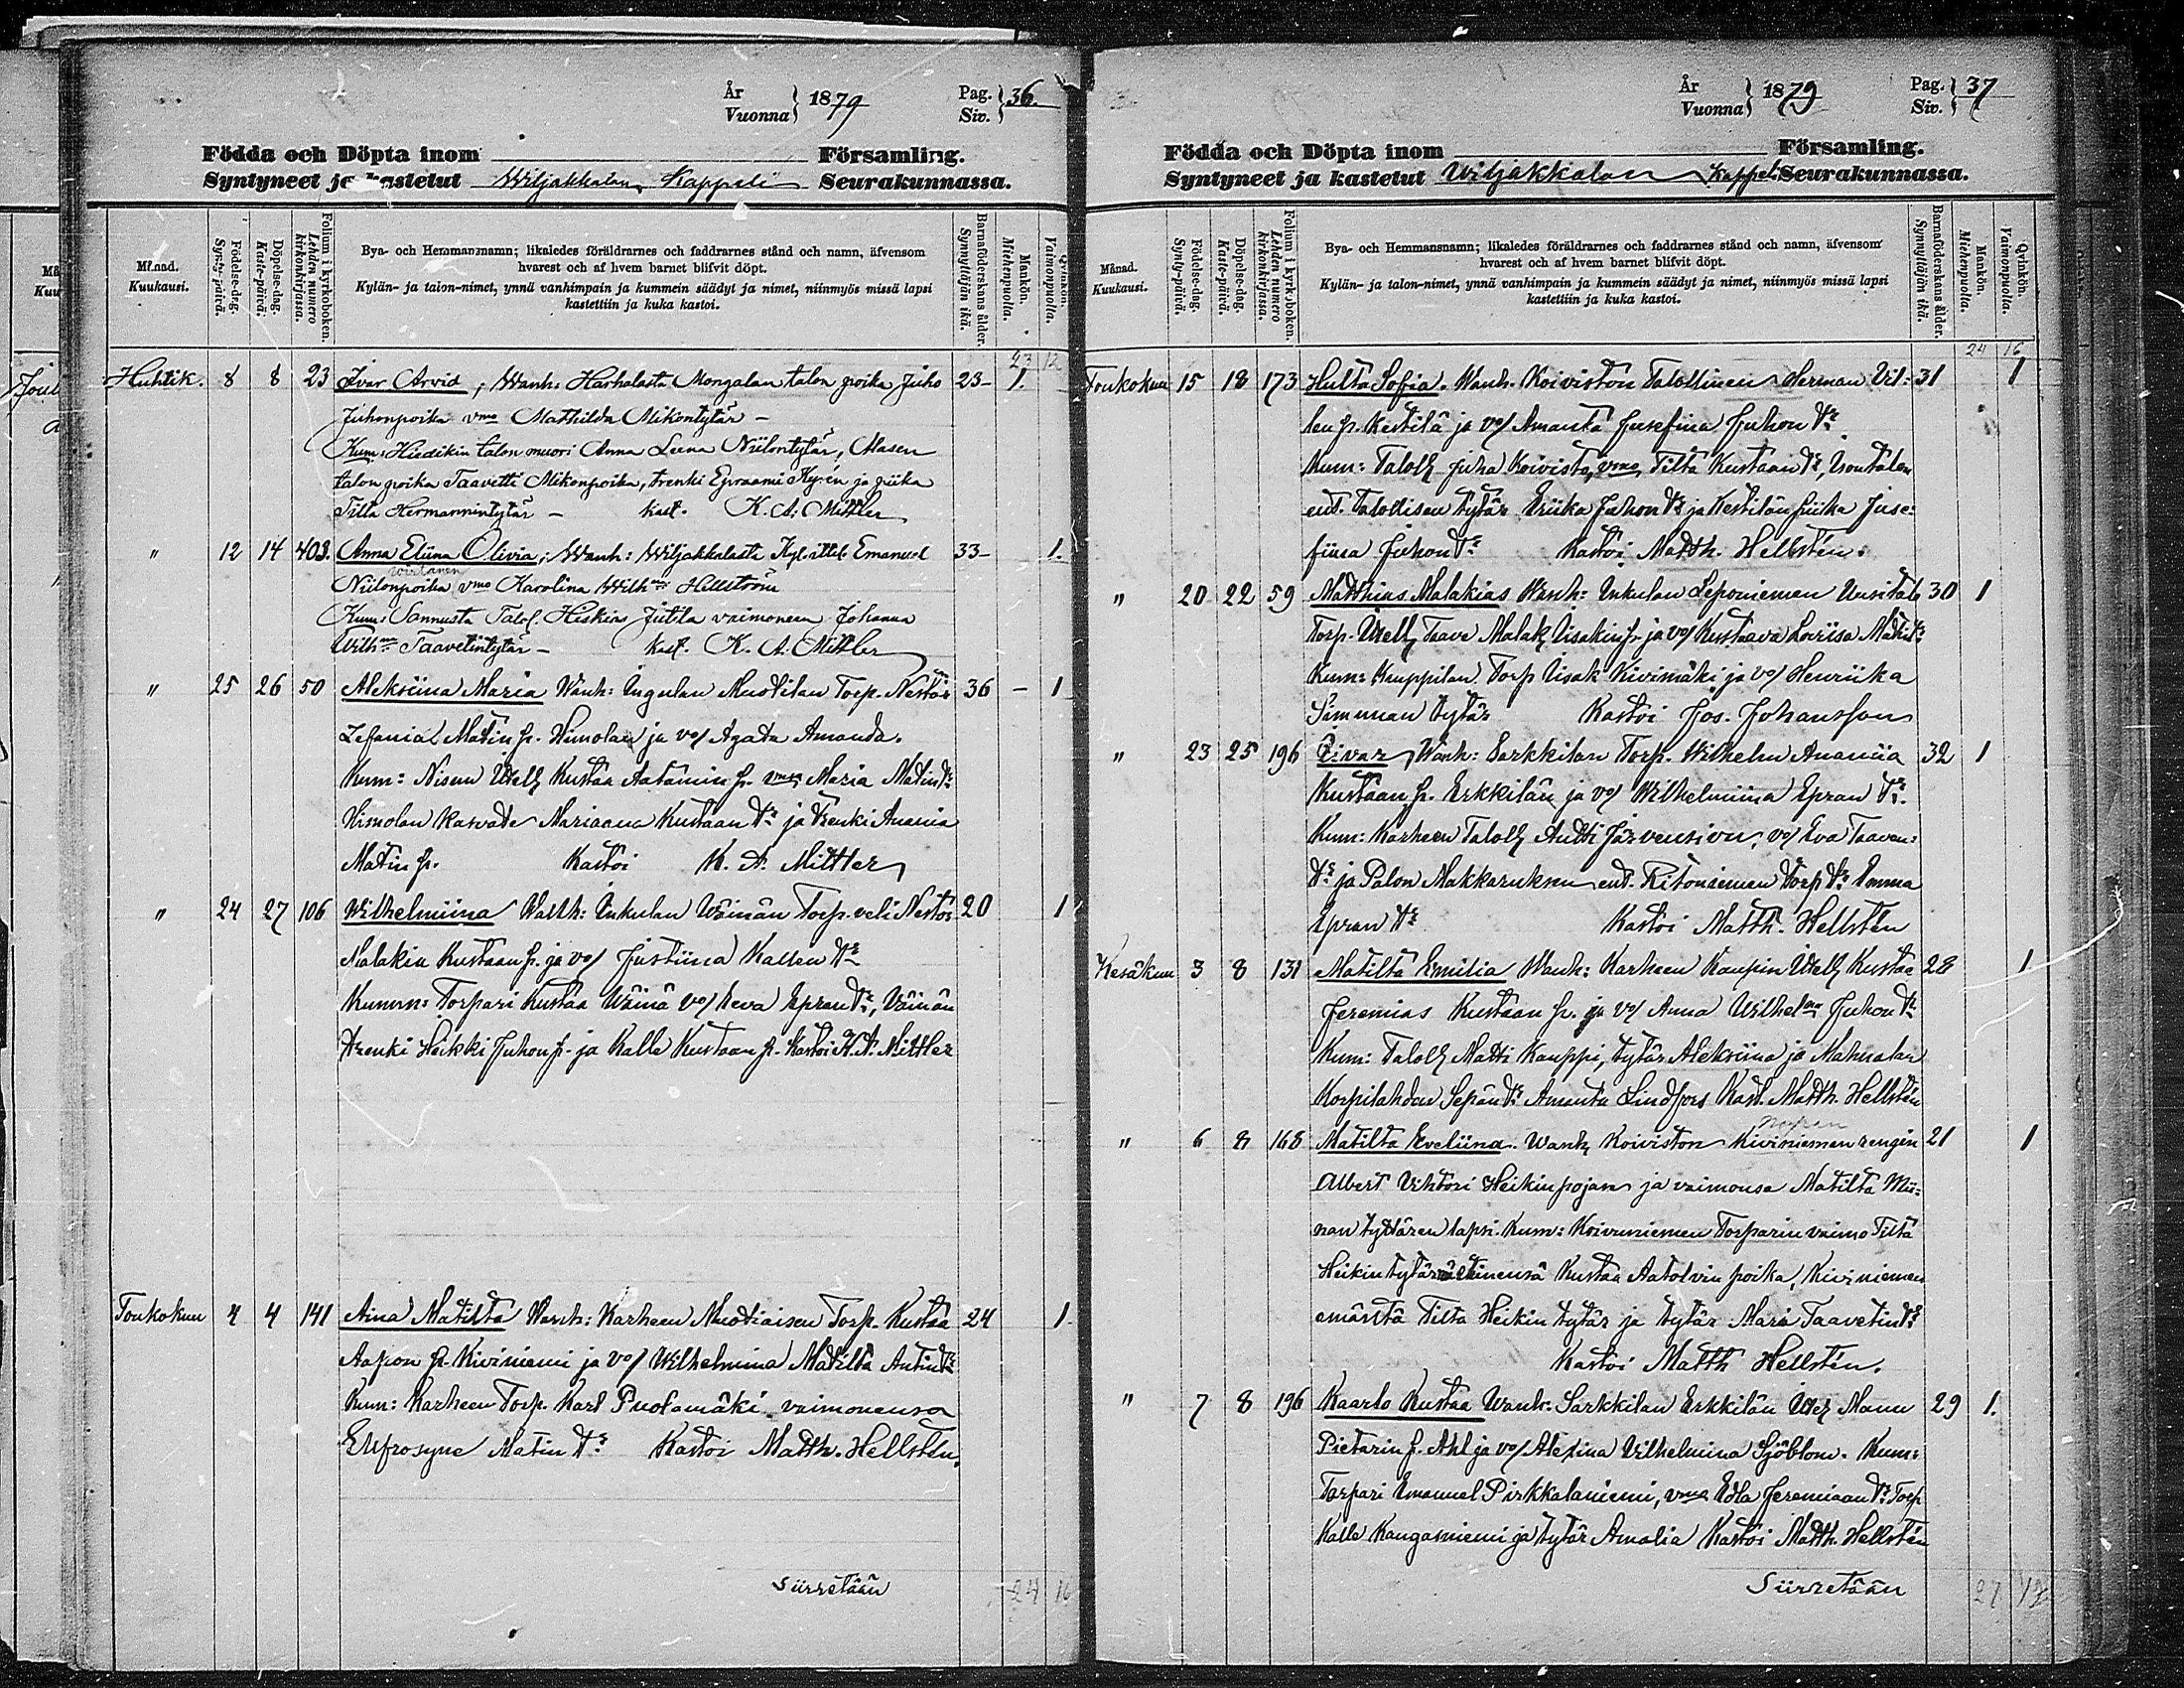 År
Vuonna } 1879
Pag.
Siv. } 36.
Födda och Döpta inom Församling.
Syntyneet ja kastetut Wiljakkalan Kappeli Seurakunnassa.
Månad.
Kuukausi.
Födelse-dag.
Synty-päivä.
Döpelse-dag.
Kaste-päivä.
Folium i kyrkoboken.
Lehden numero
kirkonkirjassa.
Bya- och Hemmansnamn; likaledes föräldrarnes och faddrarnes stånd och namn, äfvensom
hvarest och af hvem barnet blifvit döpt.
Kylän- ja talon-nimet, ynnä vanhimpain ja kummein säädyt ja nimet, niinmyös missä lapsi
kastettiin ja kuka kastoi.
Barnaföderskans ålder.
Synnyttäjän ikä.
Mankön.
Miehenpuolia.
Qvinkön.
Vaimonpuolia.
23 12
Huhtik. 8 8 23 Ivar Arvid, Wanh: Harhalasta Mongalan talon poika Juho 23- 1.
Juhonpoika vmo Mathilda Mikontytär -
Kum: Hiedikin talon muori Anna Leena Niilontytär, Alasen
talon poika Taavetti Mikonpoika, trenki Epraami Kyrén ja piika
Tilta Hermannintytär - kast. K. A. Mittler
" 12 14 403. Anna Eliina Olivia; Wanh: Wiljakkalasta Emanuel 33- 1.
Wirtanen
Niilonpoika vmo Karolina Wilhna Hellström
Kum: Sannusta Talol. Hiskias Jutila vaimonensa Johanna
Wilhna Taavetintytär - kast. K. A. Mittler
" 25 26 50 Aleksiina Maria Wanh: Ingulan Muotilan Torp. Nestor 36 - 1
Zefanias Matin p. Himolan ja vo/ Agata Amanda.
Kum: Nisun Kustaa Aatamin p. vmo Maria Matin tr.
Himolan kasvate Mariaana Kustaan tr ja trenki Anania
Matin p. Kastoi K. A. Mittler
" 24 27 106 Wilhelmiina Wanh: Inkulan Wäinän Torp. veli Nestor 20 1
Malakia Kustaan p. ja vo/ Justiina Kallen tr
Kumm: Torpari Kustaa Wäinä vo/ Eeva Epran tr, Väinän
trenki Heikki Juhon p. ja Kalle Kustaan p. Kastoi K. A. Mittler
Toukokuu 4 4 141 Aina Matilta Wanh: Karheen Muotiaisen Torp. Kustaa 24 1.
Aapon p. Kiviniemi ja vo/ Wilhelmina Matilta Antin tr
Kum: Karheen Torp. Karl Puolamäki vaimonensa
Eufrosyne Matin tr Kastoi Matth. Hellstén.
Siirretään 24 16
År
Vuonna } 1879
Pag.
Siv. } 37
Födda och Döpta inom Församling.
Syntyneet ja kastetut Wiljakkalan Kappeli Seurakunnassa.
Månad.
Kuukausi.
Födelse-dag.
Synty-päivä.
Döpelse-dag.
Kaste-päivä.
Folium i kyrkoboken.
Lehden numero
kirkonkirjassa.
Bya- och Hemmansnamn; likaledes föräldrarnes och faddrarnes stånd och namn, äfvensom
hvarest och af hvem barnet blifvit döpt.
Kylän- ja talon-nimet, ynnä vanhimpain ja kummein säädyt ja nimet, niinmyös missä lapsi
kastettiin ja kuka kastoi.
Barnaföderskans ålder.
Synnyttäjän ikä.
Mankön.
Miehenpuolia.
Qvinkön.
Vaimonpuolia.
24 16
Toukokuu 15 18 173 Hulta Sofia. Wanh. Koiviston Talollinen Herman Vil= 31 1
len p. Kestilä ja vo/ Amanta Jusefiina Juhon tr
Kum: Taloll Juha Koivisto, vmo Tilta Kustaan tr,
ent. talollisen tytär Eriika Juhon tr ja Kestilän piika Juse=
fiina Juhon tr Kastoi Matth. Hellstén.
" 20 22 59 Matthias Malakias Wanh: Inkulan Leponiemen 30 1
Torp. Taave Malak Iisakin p. ja vo/ Kustaava Loviisa Matin tr.
Kum: Kauppilan Torp Iisak Kivimäki ja vo/ Henriika
Simunan tytär Kastoi Jos. Johansson
" 23 25 196 Eivar Wanh: Sarkkilan Torp. Wilhelm Ananiia 32 1
Kustaan p. Erkkilän ja vo/ Wilhelmiina Epran tr.
Kum: Karheen Taloll Antti Järvensivu, vo/ Eva Taaven=
tr ja Palon Makkaruksen ent. Ritoniemen Torp tr Emma
Epran tr Kastoi Matth. Hellstén
Kesäkuu 3 8 131 Matilta Emilia Wanh: Karheen Kaupin Kustaa 28 1
Jeremias Kustaan p. ja vo/ Anna Wilhelna Juhon tr
Kum: Taloll Matti Kauppi, tytär Aleksiina ja Mahnalan
Korpilahden Sepän tr Amanta Lindfors Kast. Matth. Hellstén
" 6 8 168 Matilta Eveliina. Wanh, Koiviston Kiviniemen rengin 21 1
Albert Vihtori Heikinpojan ja vaimonsa Matilta Mii=
nan tyttären lapsi. Kum: Koivuniemen Torparin vaimo Tilta
Heikintytär Kustaa Aatolvin poika, Kiviniemen
emäntä Tilta Heikin tytär ja tytär Maria Taavetin tr
Kastoi Matth Hellstén.
" 7 8 196 Kaarlo Kustaa Wanh: Sarkkilan Erkkilän Manu 29 1.
Pietarin p. Ahl ja vo/ Alexina Vilhelmina Sjöblom. Kum:
Torpari Emanuel Pirkkalaniemi, vmo Edla Jeremiaan tr. Torp
Kalle Kangasniemi ja tytär Amalia Kastoi Matth. Hellstén
Siirretään 27